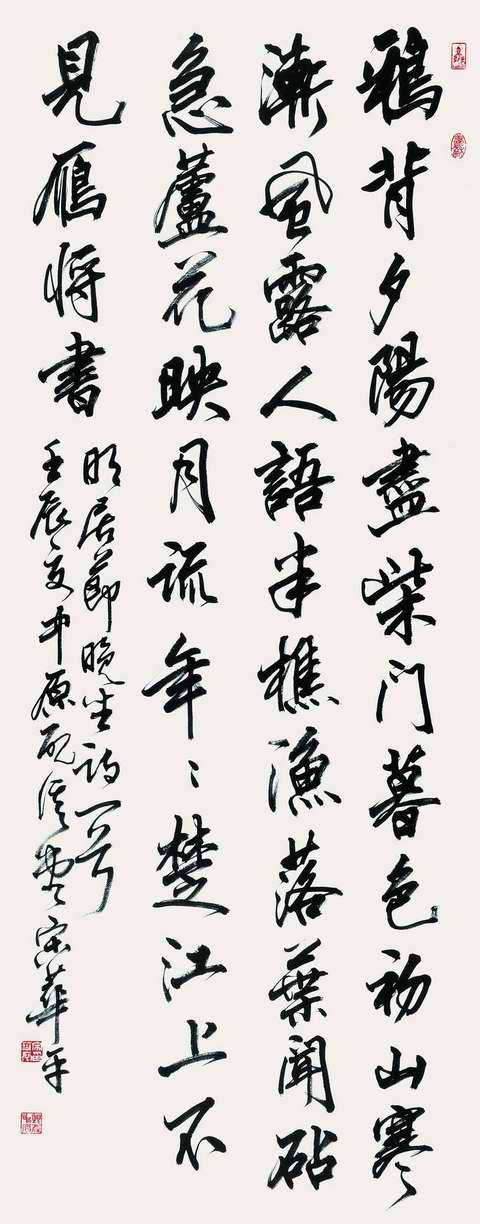 鴉背夕陽盡柴門暮色初山寒
漸風露人語半樵漁落葉聞砧
急蘆花映月疏年々楚江上不
見鴈將書
明居節晚坐詩一首
壬辰夏中原宋華平